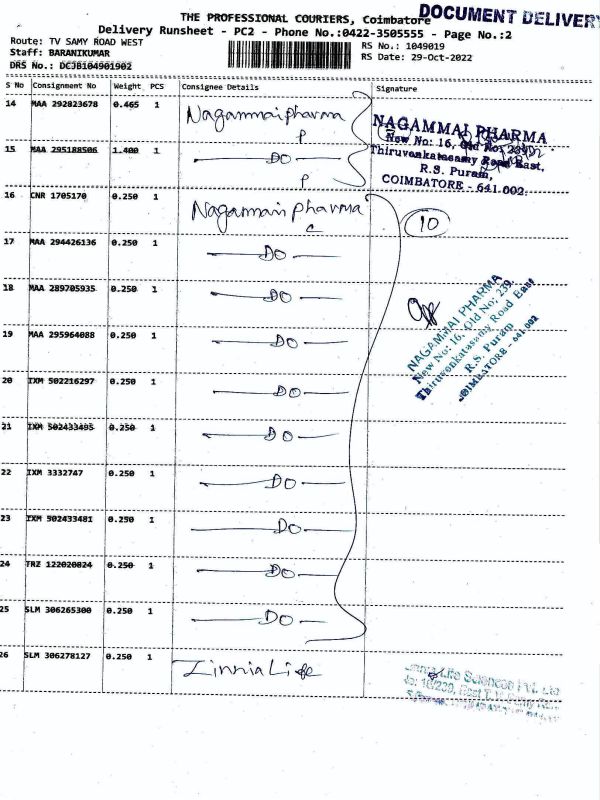 THE PROFESSIONAL COURIERS, Coimbatore
DOCUMENT DELIVERY
Delivery Runsheet - PC2 - Phone No.:0422-3505555 - Page No.:2
Route: TV SAMY ROAD WEST
RS No.: 1049019
Staff: BARANIKUMAR
RS Date: 29-Oct-2022
DRS No.: DCJB104901902
S No Consignment No Weight PCS Consignee Details Signature
14 MAA 292823678 0.465 1 Nagammai pharma
P
NAGAMMAI PHARMA
New No: 16, Old No: 239,
Thiruvenkatasamy Road East,
R.S. Puram,
COIMBATORE - 641 002.
15 MAA 295188506 1.400 1 DO
P
16 CNR 1705170 0.250 1 Nagammai pharma
C
10
17 MAA 294426136 0.250 1 DO
18 MAA 289705935 0.250 1 DO
NAGAMMAI PHARMA
New No: 16, Old No: 239,
Thiruvenkatasamy Road East
R.S. Puram
COIMBATORE - 641 002
19 MAA 295964088 0.250 1 DO
20 IXM 502216297 0.250 1 DO
21 IXM 502433495 0.250 1 DO
22 IXM 3332747 0.250 1 DO
23 IXM 502433481 0.250 1 DO
24 TRZ 122020024 0.250 1 DO
25 SLM 306265300 0.250 1 DO
26 SLM 306278127 0.250 1 Zinnia Life
Life Sciences Pvt. Ltd